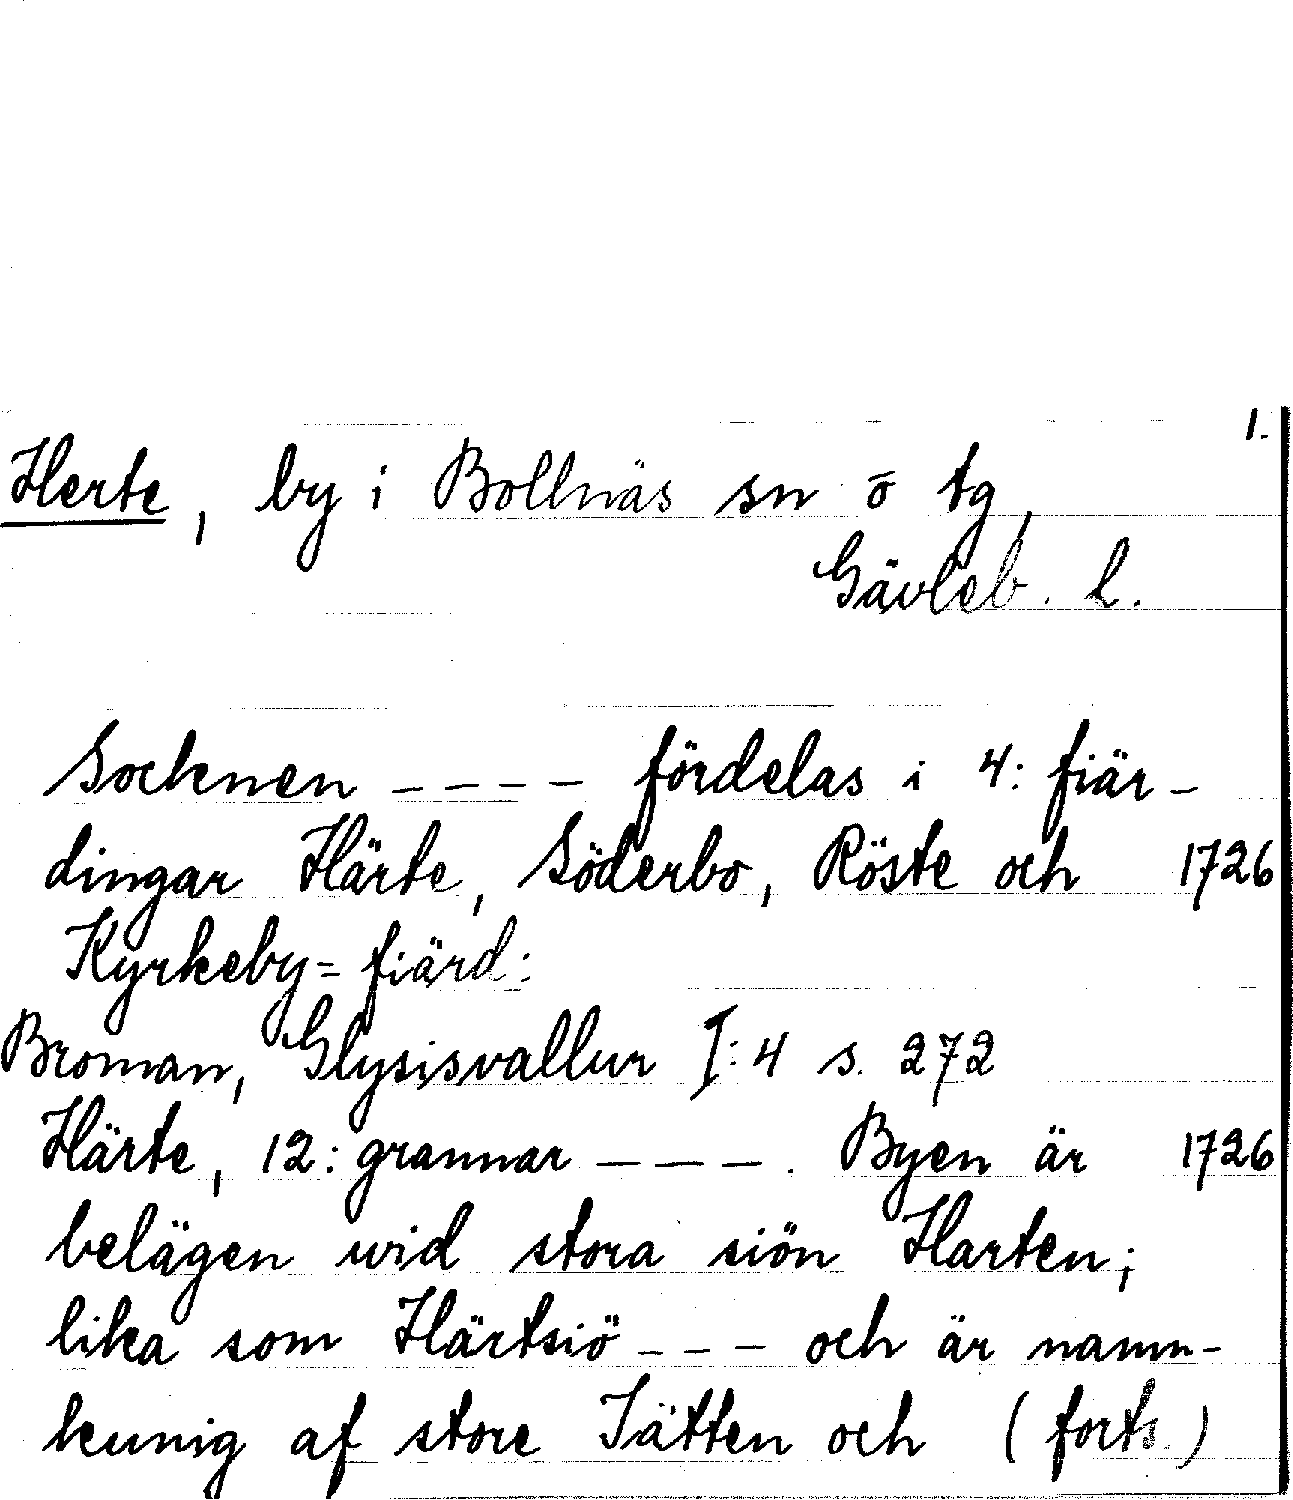 1.
Herte, by i Bollnäs sn o tg,
Gävleb. l.
Socknen ---- fördelas i 4: fiär-
dingar Härte, Söderbo, Röste och 1726
Kyrkeby=fiärd:
Broman, Glysisvallur I:4 s. 272
Härte, 12: grannar ---. Byen är 1726
belägen wid stora siön Harten;
lika som Härtsiö --- och är namm-
kunig af store Jätten och (forts.)